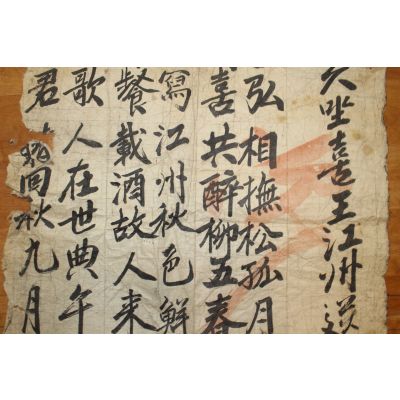 坐喜王江州送
弘相撫松孤月
喜共醉柳五春
寫江州秋色鮮
餐載酒故人来
歌人在世典午
君回秋九月